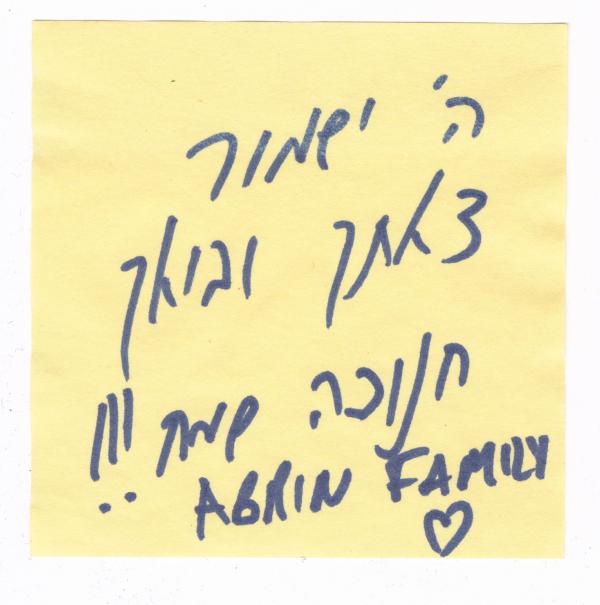 ה' ישמור
צאתך ובואך
חנוכה שמח !!!
ABRIN FAMILY